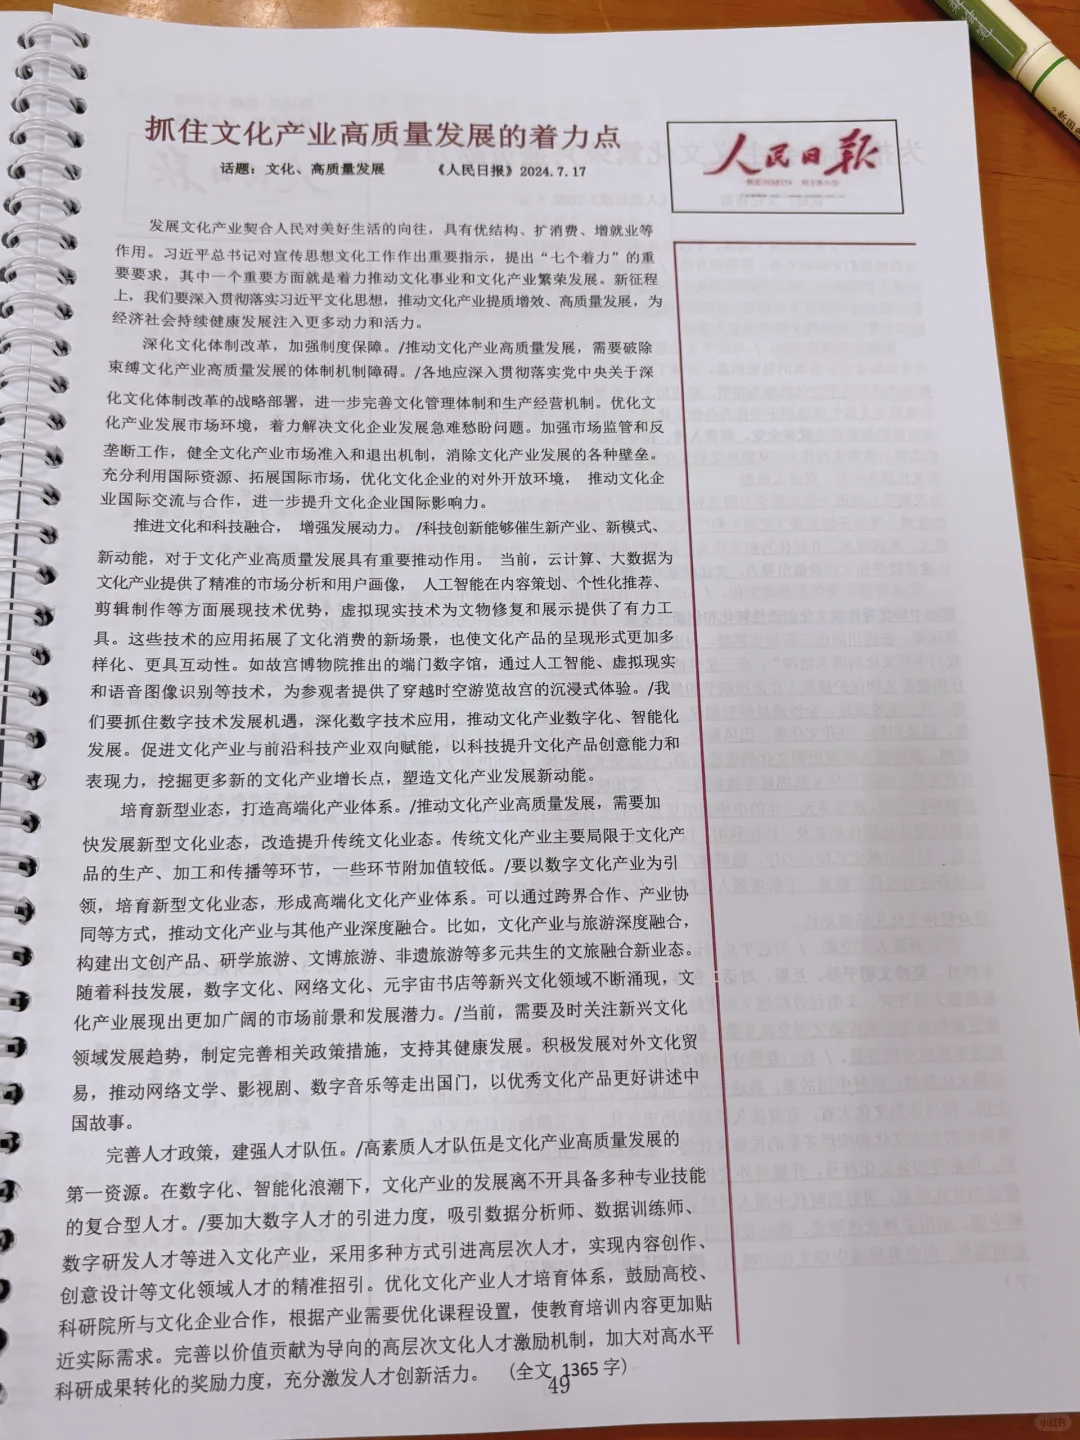 抓住文化产业高质量发展的着力点
话题：文化、高质量发展 《人民日报》2024.7.17
人民日报
RENMIN RIBAO
发展文化产业契合人民对美好生活的向往，具有优结构、扩消费、增就业等
作用。习近平总书记对宣传思想文化工作作出重要指示，提出“七个着力”的重
要要求，其中一个重要方面就是着力推动文化事业和文化产业繁荣发展。新征程
上，我们要深入贯彻落实习近平文化思想，推动文化产业提质增效、高质量发展，为
经济社会持续健康发展注入更多动力和活力。
深化文化体制改革，加强制度保障。/推动文化产业高质量发展，需要破除
束缚文化产业高质量发展的体制机制障碍。/各地应深入贯彻落实党中央关于深
化文化体制改革的战略部署，进一步完善文化管理体制和生产经营机制。优化文
化产业发展市场环境，着力解决文化企业发展急难愁盼问题。加强市场监管和反
垄断工作，健全文化产业市场准入和退出机制，消除文化产业发展的各种壁垒。
充分利用国际资源、拓展国际市场，优化文化企业的对外开放环境， 推动文化企
业国际交流与合作，进一步提升文化企业国际影响力。
推进文化和科技融合， 增强发展动力。 /科技创新能够催生新产业、新模式、
新动能，对于文化产业高质量发展具有重要推动作用。 当前，云计算、大数据为
文化产业提供了精准的市场分析和用户画像， 人工智能在内容策划、个性化推荐、
剪辑制作等方面展现技术优势，虚拟现实技术为文物修复和展示提供了有力工
具。这些技术的应用拓展了文化消费的新场景，也使文化产品的呈现形式更加多
样化、更具互动性。如故宫博物院推出的端门数字馆，通过人工智能、虚拟现实
和语音图像识别等技术，为参观者提供了穿越时空游览故宫的沉浸式体验。/我
们要抓住数字技术发展机遇，深化数字技术应用，推动文化产业数字化、智能化
发展。促进文化产业与前沿科技产业双向赋能，以科技提升文化产品创意能力和
表现力，挖掘更多新的文化产业增长点，塑造文化产业发展新动能。
培育新型业态，打造高端化产业体系。/推动文化产业高质量发展，需要加
快发展新型文化业态，改造提升传统文化业态。传统文化产业主要局限于文化产
品的生产、加工和传播等环节，一些环节附加值较低。/要以数字文化产业为引
领，培育新型文化业态，形成高端化文化产业体系。可以通过跨界合作、产业协
同等方式，推动文化产业与其他产业深度融合。比如，文化产业与旅游深度融合，
构建出文创产品、研学旅游、文博旅游、非遗旅游等多元共生的文旅融合新业态。
随着科技发展，数字文化、网络文化、元宇宙书店等新兴文化领域不断涌现，文
化产业展现出更加广阔的市场前景和发展潜力。/当前，需要及时关注新兴文化
领域发展趋势，制定完善相关政策措施，支持其健康发展。积极发展对外文化贸
易，推动网络文学、影视剧、数字音乐等走出国门，以优秀文化产品更好讲述中
国故事。
完善人才政策，建强人才队伍。/高素质人才队伍是文化产业高质量发展的
第一资源。在数字化、智能化浪潮下，文化产业的发展离不开具备多种专业技能
的复合型人才。/要加大数字人才的引进力度，吸引数据分析师、数据训练师、
数字研发人才等进入文化产业，采用多种方式引进高层次人才，实现内容创作、
创意设计等文化领域人才的精准招引。优化文化产业人才培育体系，鼓励高校、
科研院所与文化企业合作，根据产业需要优化课程设置，使教育培训内容更加贴
近实际需求。完善以价值贡献为导向的高层次文化人才激励机制，加大对高水平
科研成果转化的奖励力度，充分激发人才创新活力。 （全文 1365 字）
49
小红书